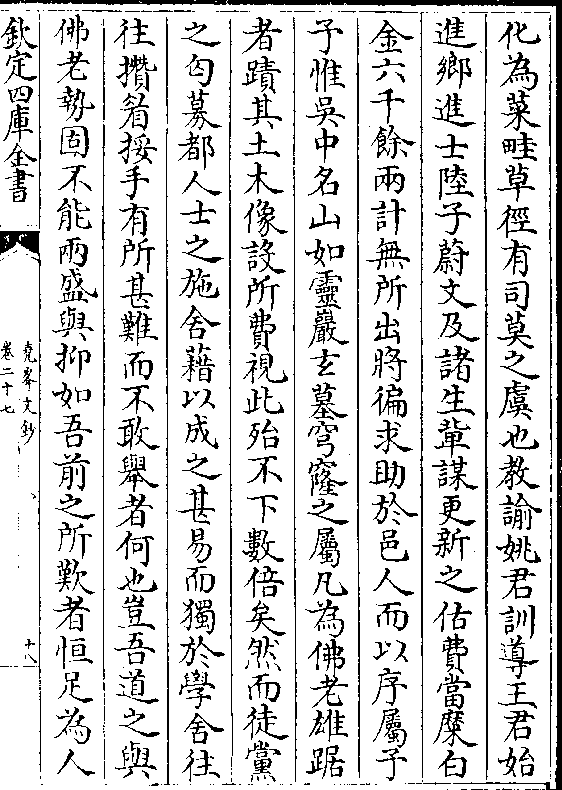 化為菜畦草徑有司莫之虞也教諭姚君訓導王君始
進鄉進士陸子蔚文及諸生軰謀更新之估費當糜白
金六千餘兩計無所出將徧求助於邑人而以序屬予
予惟吳中名山如靈巖玄墓穹窿之屬凡為佛老雄踞
者蹟其土木像設所費視此殆不下數倍矣然而徒黨
之匄募都人士之施舎藉以成之甚易而獨於學舎往
往攢眉挼手有所甚難而不敢舉者何也豈吾道之與
佛老勢固不能兩盛與抑如吾前之所歎者恒足為人
欽定四庫全書
堯峯文鈔
卷二十七
十八